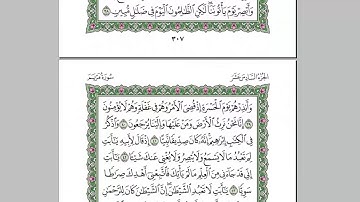 وَأَبْصِرْ يَوْمَ يَأْتُونَنَا لَٰكِنِ الظَّالِمُونَ الْيَوْمَ فِي ضَلَالٍ مُّبِينٍ ٣٨
٣٠٧
الجزء السادس عشر سورة مريم
وَأَنذِرْهُمْ يَوْمَ الْحَسْرَةِ إِذْ قُضِيَ الْأَمْرُ وَهُمْ فِي غَفْلَةٍ وَهُمْ لَا يُؤْمِنُونَ
٣٩ إِنَّا نَحْنُ نَرِثُ الْأَرْضَ وَمَنْ عَلَيْهَا وَإِلَيْنَا يُرْجَعُونَ ٤٠ وَاذْكُرْ
فِي الْكِتَابِ إِبْرَاهِيمَ إِنَّهُ كَانَ صِدِّيقًا نَّبِيًّا ٤١ إِذْ قَالَ لِأَبِيهِ يَا أَبَتِ
لِمَ تَعْبُدُ مَا لَا يَسْمَعُ وَلَا يُبْصِرُ وَلَا يُغْنِي عَنكَ شَيْئًا ٤٢ يَا أَبَتِ
إِنِّي قَدْ جَاءَنِي مِنَ الْعِلْمِ مَا لَمْ يَأْتِكَ فَاتَّبِعْنِي أَهْدِكَ صِرَاطًا
سَوِيًّا ٤٣ يَا أَبَتِ لَا تَعْبُدِ الشَّيْطَانَ إِنَّ الشَّيْطَانَ كَانَ لِلرَّحْمَٰنِ